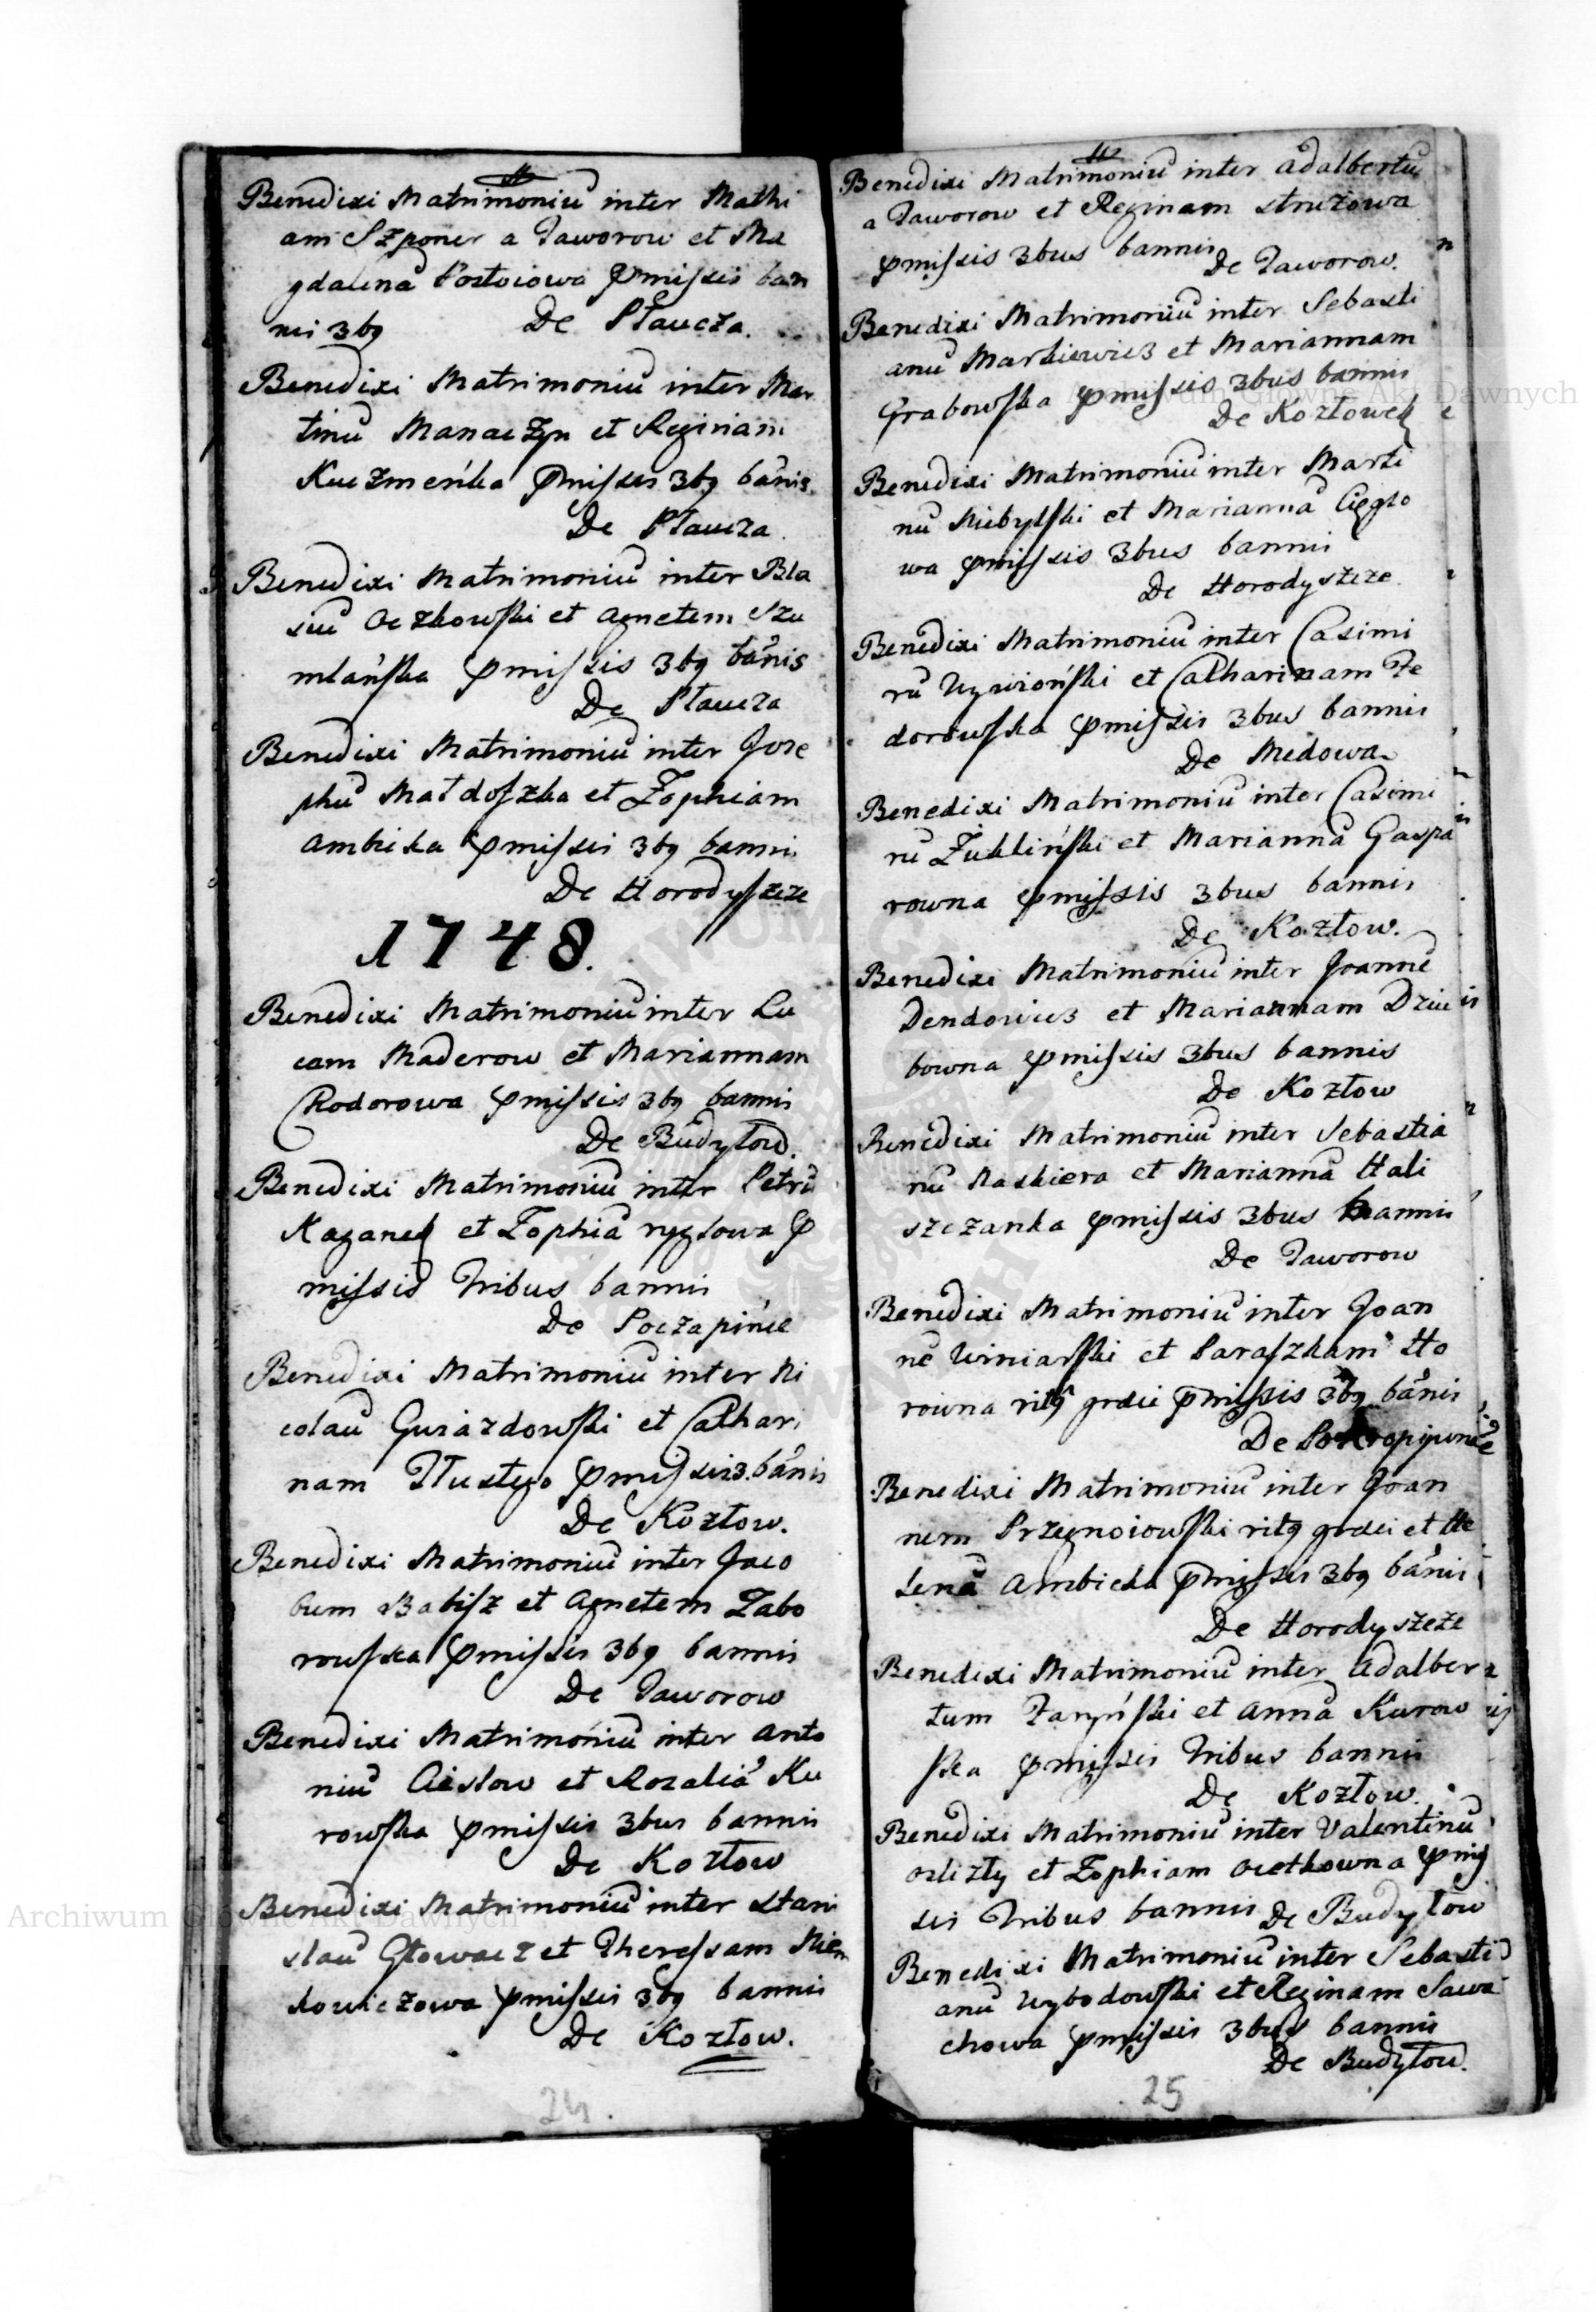 Benedixi Matrimoniũ inter Mathi
am Szponer a Jaworow et Ma
gdalenã Postoiowa pmissis ban
nis 3bq De Płaucza.
Benedixi Matrimoniũ inter Mar
tinũ Manaczyn et Reginam
Kuczmeńka pmissis 3bq bãnis
De Płaucza
Benedixi Matrimoniũ inter Bla
siũ Oczkowski et Agnetem Szu
mlańska pmissis 3bq bãnis
De Płaucza
Benedixi Matrimoniũ inter Jose
phũ Małdoszka et Zophiam
Ambicka pmissis 3bq bannis
De Horodyszcze
1748.
Benedixi Matrimoniũ inter Lu
cam Maderow et Mariannam
Chodorowa pmissis 3bq bannis
De Budyłow.
Benedixi Matrimoniũ inter Petrũ
Kaganek et Zophiã ryglowa p
missis Tribus bannis
De Poczapińce
Benedixi Matrimoniũ inter Ni
colaũ Gwiazdowski et Cathari
nam Tłustego pmissis 3. bãnis
De Kozłow.
Benedixi Matrimoniũ inter Jaco
bum Babisz et Agnetem Zabo
rowska pmissis 3bq bannis
De Jaworow
Benedixi Matrimoniũ inter Anto
niũ Cieslow et Rozaliã Ku
rowska pmissis 3bus bannis
De Kozłow
Benedixi Matrimoniũ inter Stani
slaũ Głowacz et Theressam Niem
kowiczowa pmissis 3bq bannis
De Kozłow.
24.
Benedixi Matrimoniũ inter Adalbertũ
a Jaworow et Reginam Strużowa
pmissis 3bus bannis De Jaworow.
Benedixi Matrimoniũ inter Sebasti
anũ Markiewicz et Mariannam
Grabowska pmissis 3bus bannis
De Kozłowek
Benedixi Matrimoniũ inter Marti
nũ Niebylski et Mariannã Cięglo
wa pmissis 3bus bannis
De Horodyszcze
Benedixi Matrimoniũ inter Casimi
rũ et Catharinam Fe
dorowska pmissis 3bus bannis
De Medowa
Benedixi Matrimoniũ inter Casimi
rũ Żukliński et Mariannã Gaspa
rowna pmissis 3bus bannis
De Kozłow.
Benedixi Matrimoniũ inter Joannẽ
Dendowicz et Mariannam Dziu
bowna pmissis 3bus bannis
De Kozłow
Benedixi Matrimoniũ inter Sebastia
nũ Naskiera et Mariannã Hali
szczanka pmissis 3bus bannis
De Jaworow
Benedixi Matrimoniũ inter Joan
nẽ Winiarski et Paraszkam Ho
rowna ritq grdci pmissis 3bq bãnis
De
Benedixi Matrimoniũ inter Joan
nem Przegnoiowski ritq grdci et He
lenã Ambicka pmissis 3bq bãnis
De Horodyszcze
Benedixi Matrimoniũ inter Adalber
tum Żaryński et Annã Kurow
ska pmissis Tribus bannis
De Kozłow.
Benedixi Matrimoniũ inter Valentinũ
Orlizty et Zophiam Ocetkowna pmis
sis Tribus bannis De Budyłow
Benedixi Matrimoniũ inter Sebasti
anũ Wybodowski et Reginam Sawa
chowa pmissis 3bus bannis
De Budyłow.
25
Archiwum Główne Akt Dawnych
Archiwum Główne Akt Dawnych